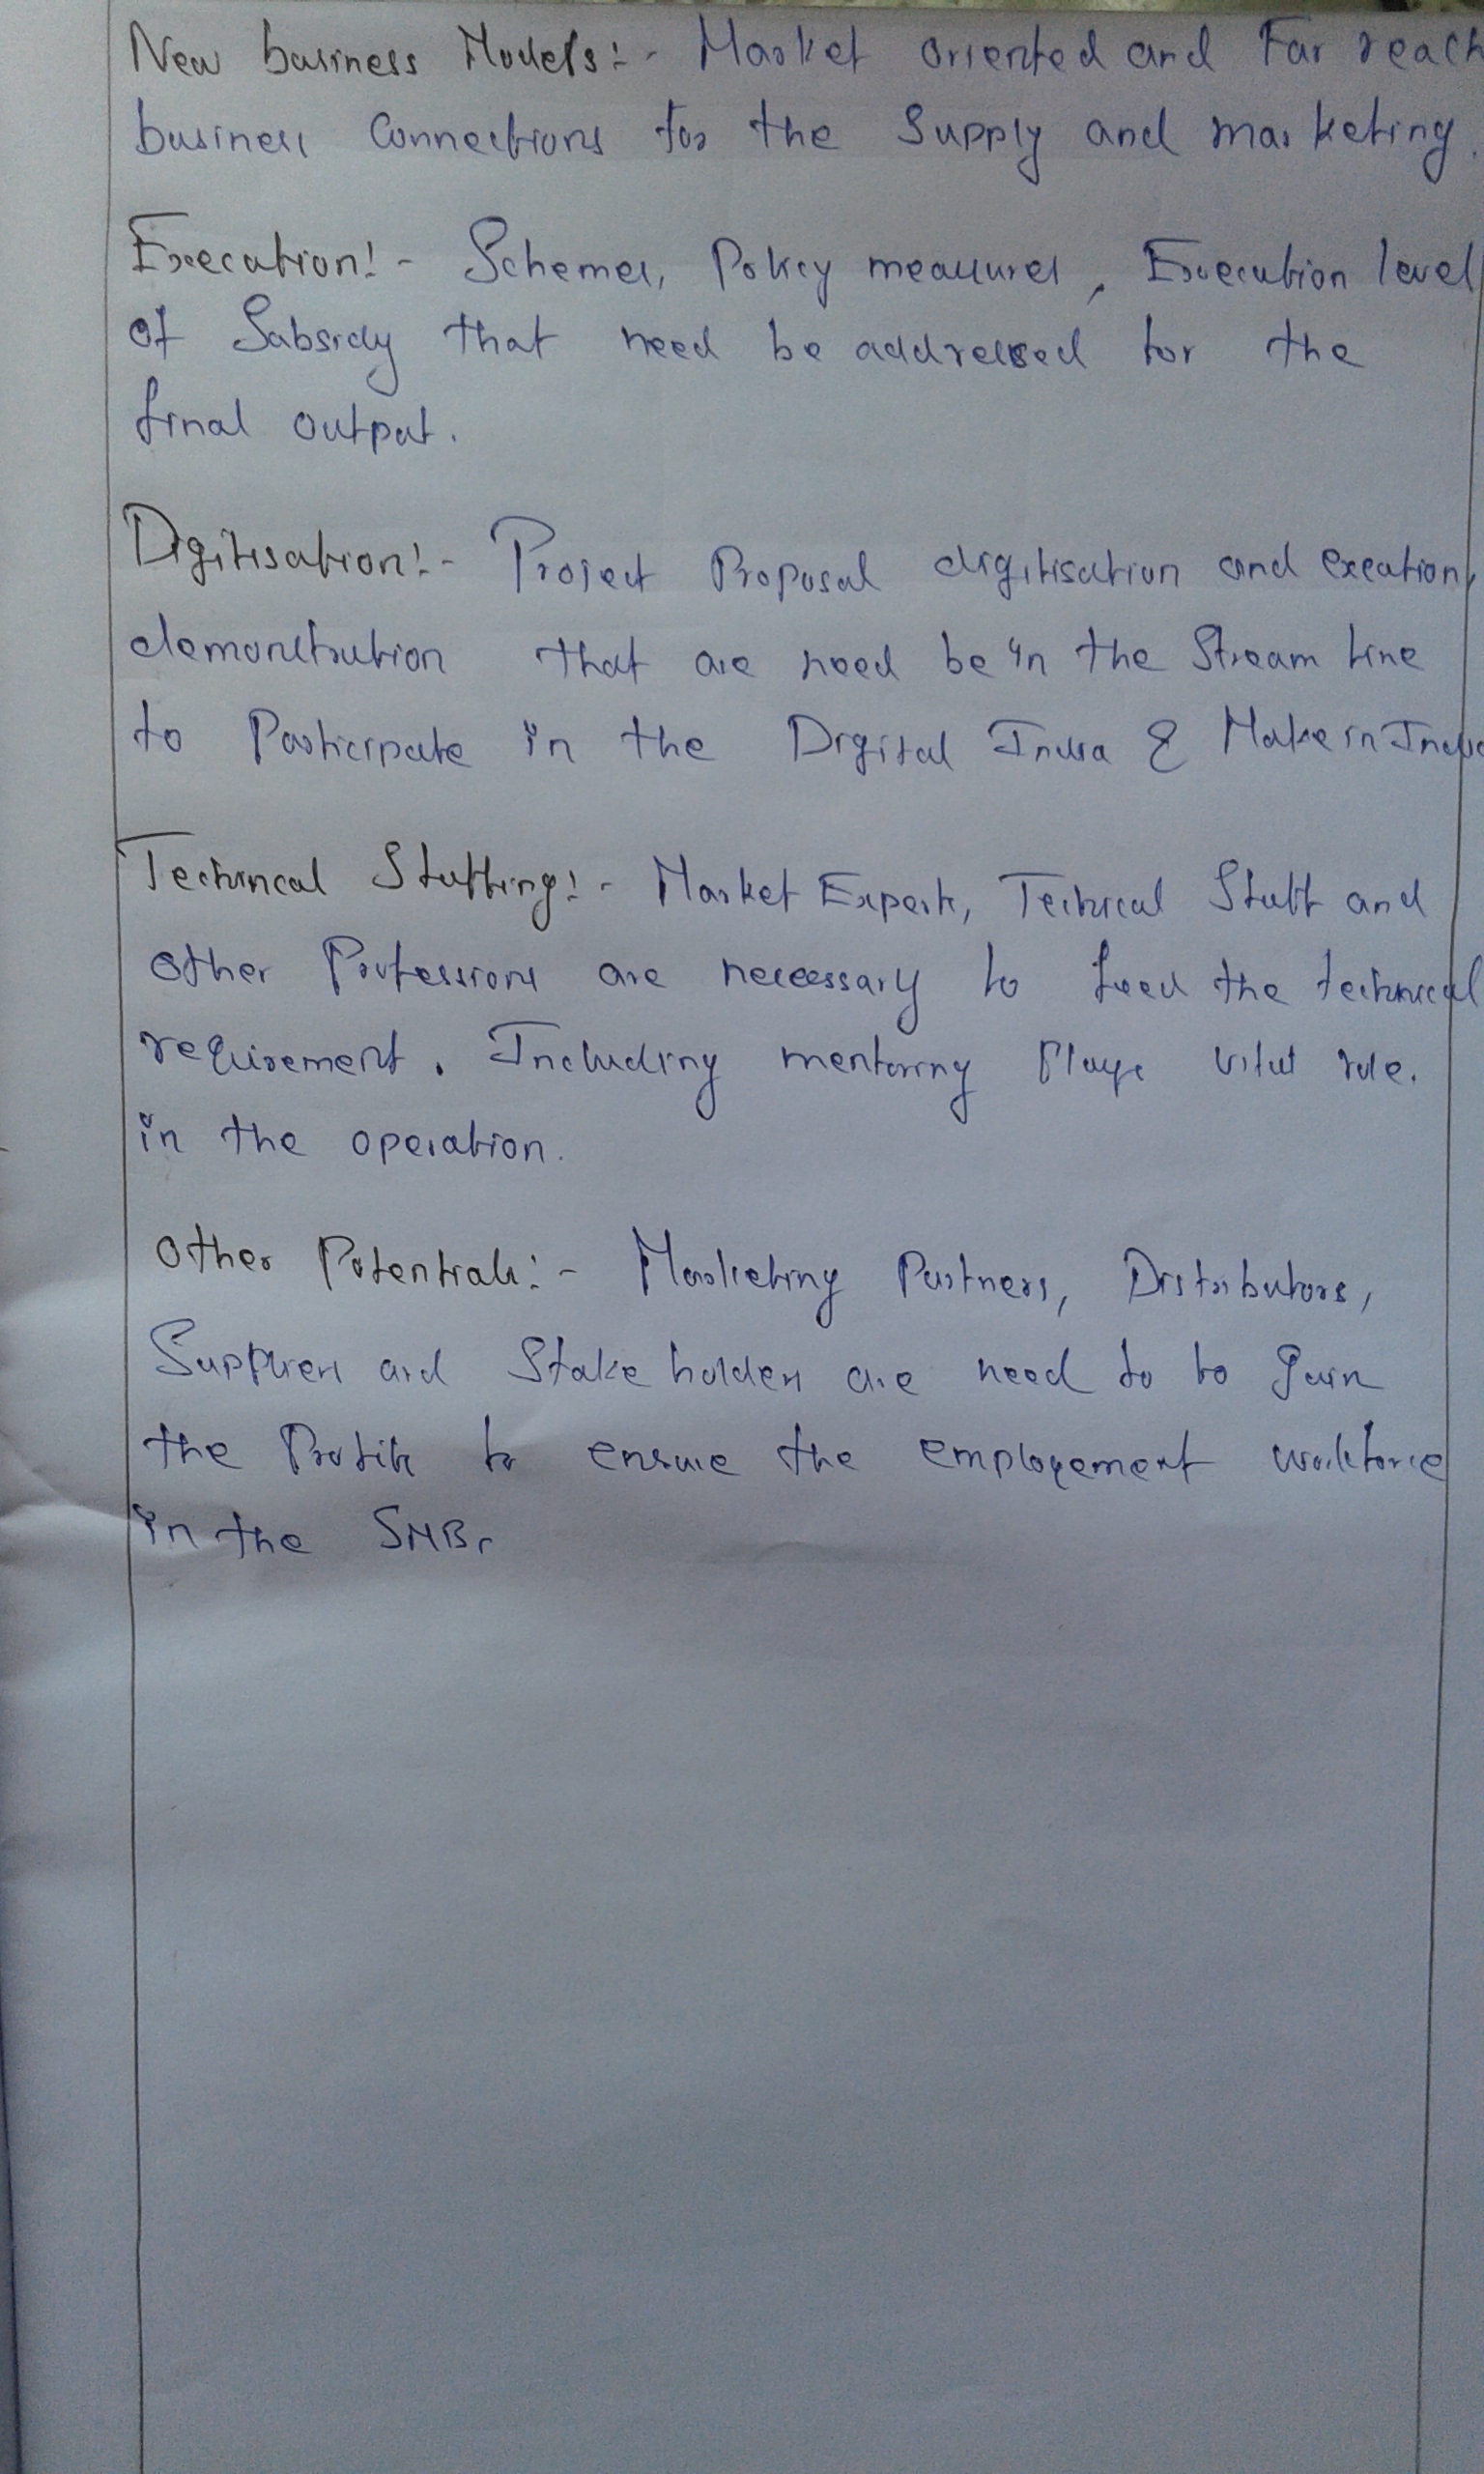 New business Models:- Market oriented and Far reach
business Connections for the Supply and marketing.
Execution:- Schemes, Policy measures, Execution level
of Subsidy that need be addressed for the
final output.
Digitisation:- Project Proposal digitisation and exeation,
demonstration that are need be in the Stream line
to Participate in the Digital India & Make in India
Technical Staffing:- Market Experts, Technical Staff and
other Professions are necessary to feed the technical
requirement. Including mentoring Plays vital role.
in the operation.
Other Potentials:- Marketing Partners, Distributors,
Suppliers and Stake holders are need to to gain
the Profits to ensure the employement workforce
in the SMBs